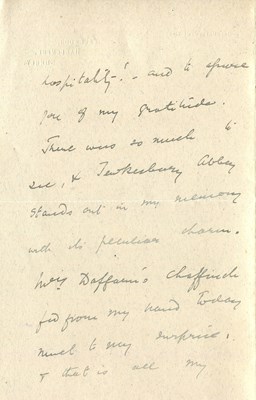 hospitality - ! - and to assure
you of my gratitude.
There was so much to
see, & Tewkesbury Abbey
stands out in my memory
with its peculiar charm.
Mrs Daffarn's Chaffinch
fed from my hand today
much to my surprise,
& that is all my